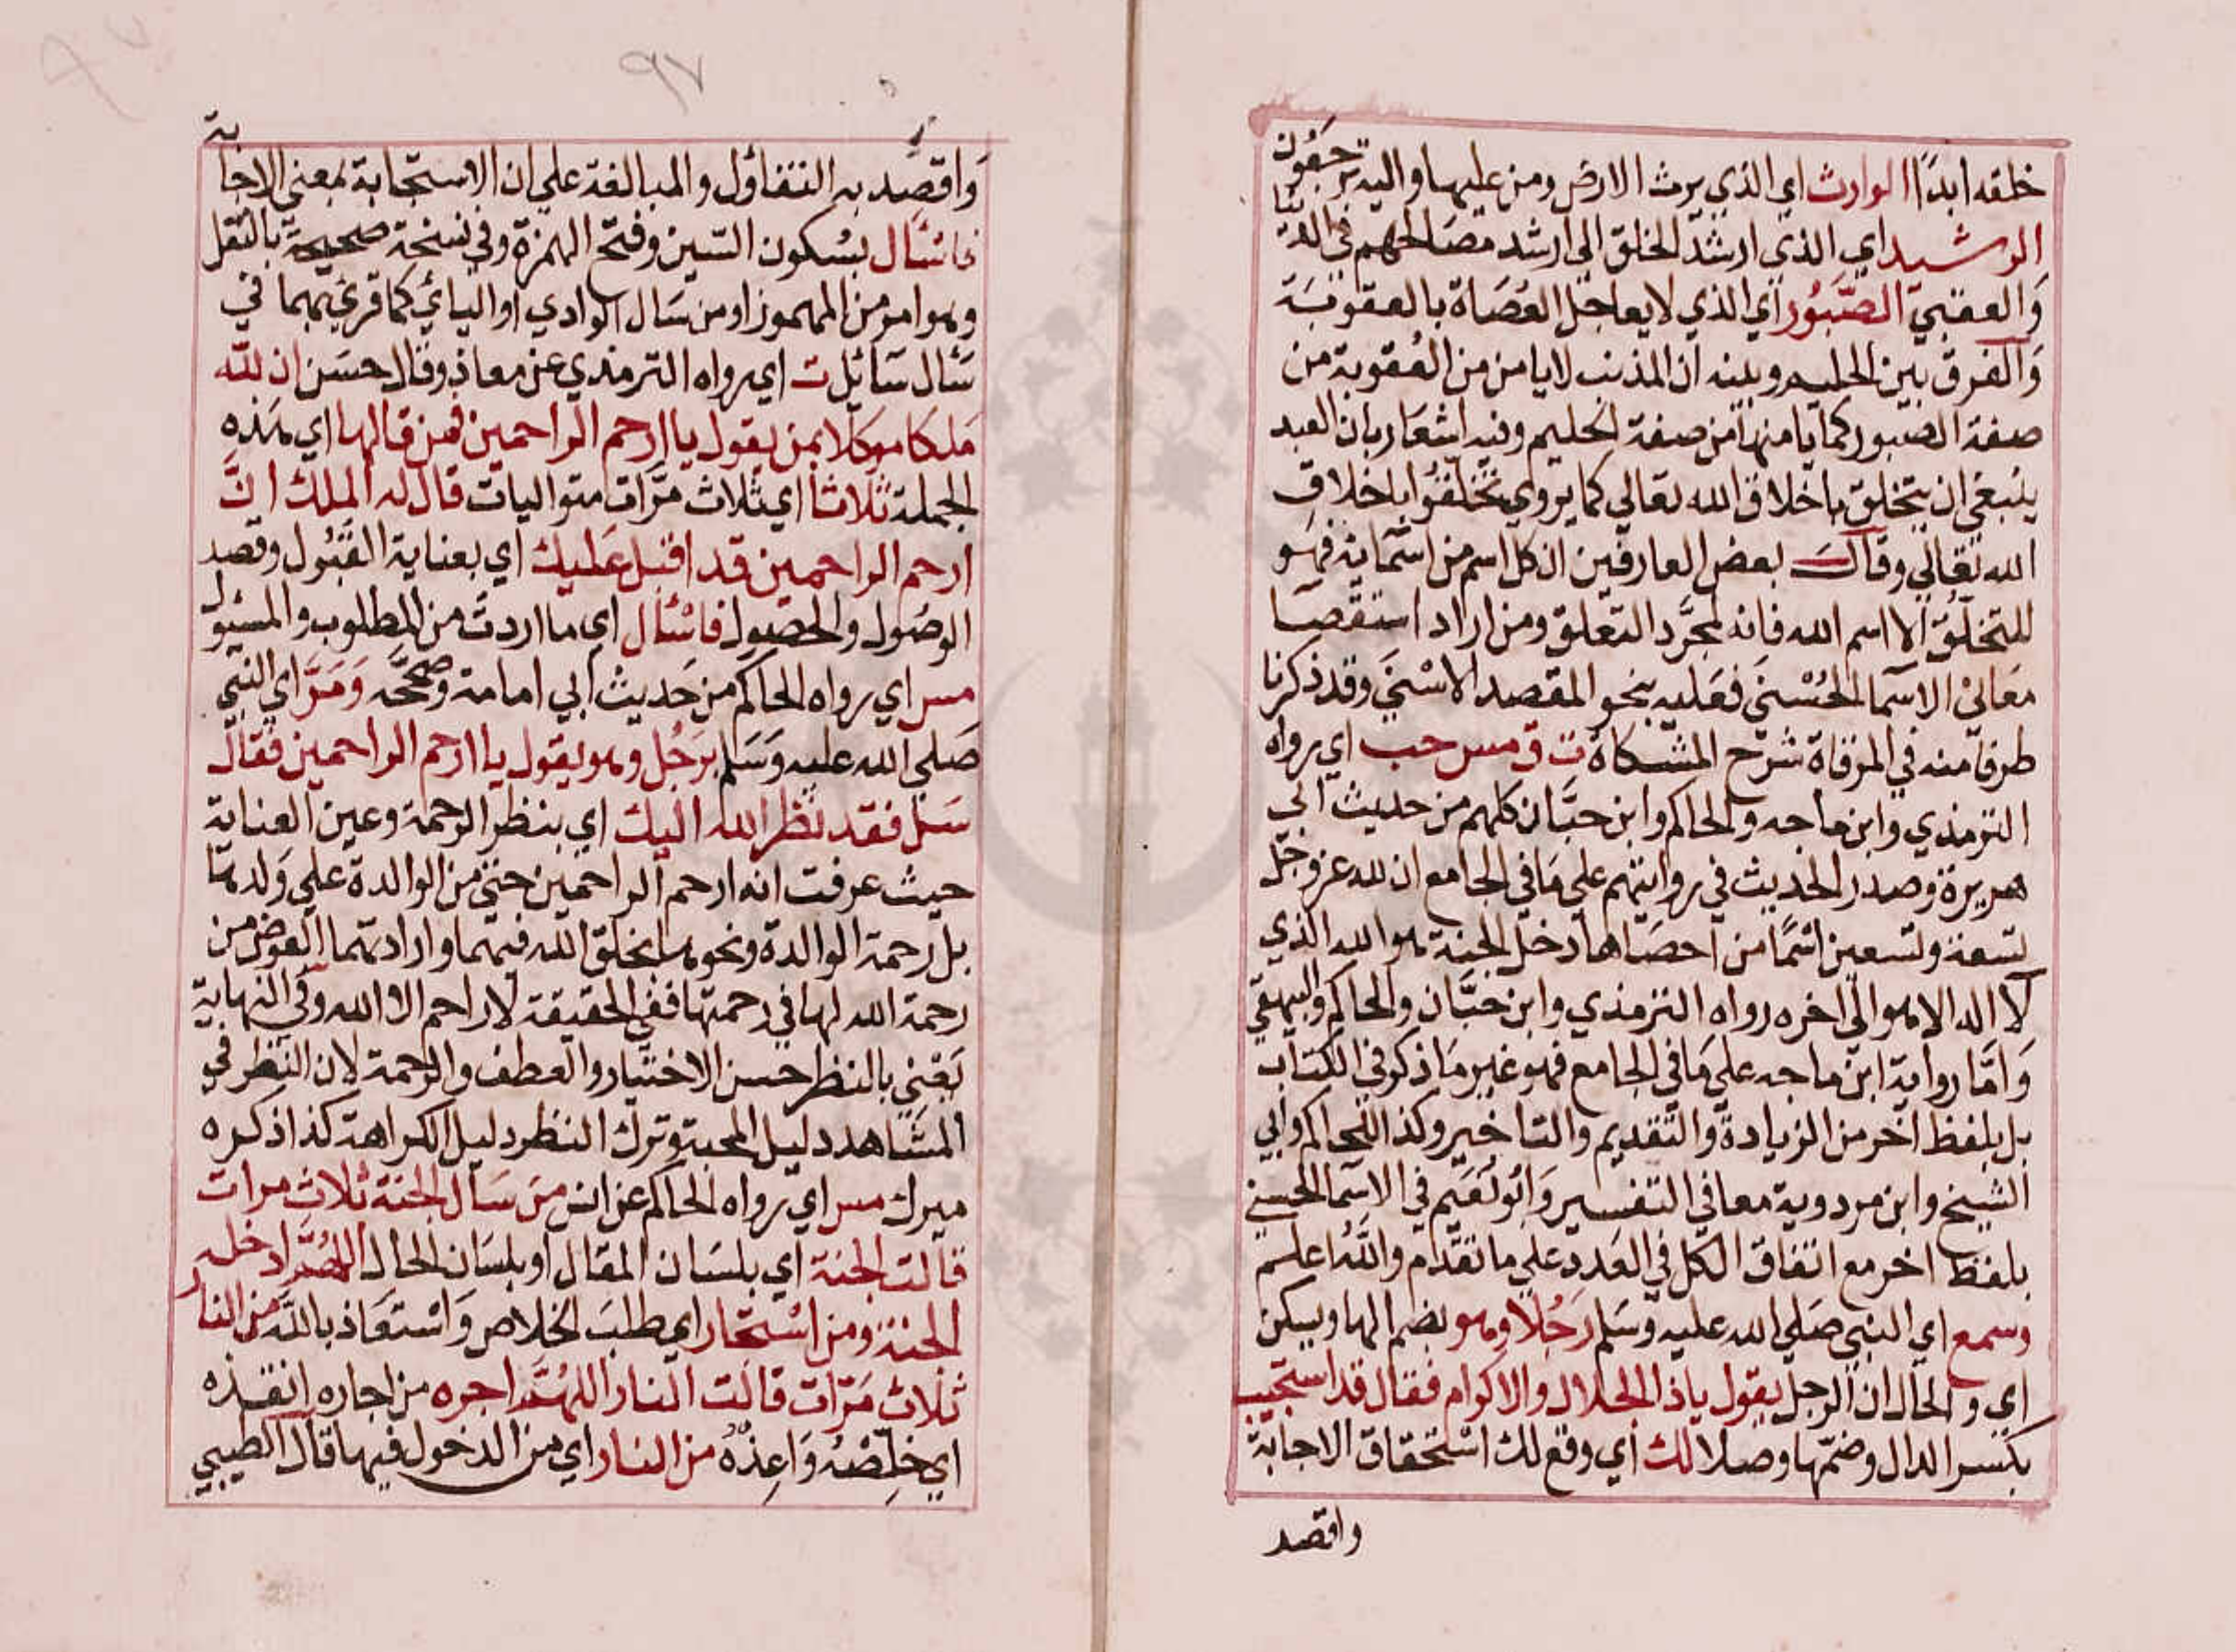 خلقه ابدًا الوارث اي الذي يرث الارض ومن عليها واليه يرجعون
الرشيد اي الذي ارشد الخلق الي ارشد مصالحهم في الدنيا
والعقبي الصَّبُور اي الذي لا يعاجل العُصَاة بالعقوبَة
وَالفرق بين الحليم وبينه ان المذنب لا يامن من العُقوبة من
صفة الصبور كما يامنها من صفة الحليم وفيه اشعار بان العبد
ينبغي ان يتخلق باخلاق الله تعالي كما يروي تخلقُوا باخلاق
الله تعالي وقال بعض العارفين ان كل اسم من اسمايه فهو
للتخلّق الا اسم الله فانه لمجرَّد التعلق ومن اراد استقصا
معَاني الاسما الحُسْني فعَليه بنحو المقصد الاسْني وقد ذكرنا
طرفا منه في المرقاة شرح المشكاة ت ق مس حب اي رواه
الترمذي وابن ماجه والحاكم وابن حبَّان كلهم من حديث ابي
هريرة وصدر الحديث في روايتهم علي مَا في الجامع ان لله عز وجل
تسعة وتسعين اسْمًا من احصَاها دخل الجنة هو الله الذي
لا اله الا هو الي اخره رواه الترمذي وابن حبَّان والحاكم والبيهقي
وَامَّا رواية ابن ماجه علي مَا في الجامع فهو غير مَا ذكر في الكتاب
بل بلفظ اخر من الزيادة والتقديم والتاخير وكذا للحاكم وابي
الشيخ وابن مردوية معا في التفسير وَابُو نُعَيم في الاسما الحسني
بلفظ اخر مع اتفاق الكل في العَدد علي ما تقدَّم واللهُ اعلم
وسمع اي النبي صَلي الله عليه وسَلم رَجُلا وهو بضم الها ويسكن
اي والحال ان الرجل يقول ياذا الجلال والاكرام فقال قد استجيب
بكسر الدال وضمّها وصلا لك اي وقع لك اسْتحقاق الاجابة
واقصد
٩٧
وَاقصِد به التفاؤل والمبالغة علي ان الاستجابة بمعني الاجابة
فاسْأل بسُكون السّين وفتح الهمزة وفي نسخة صحيحة بالنقل
وهو امر من المهموز او من سَال الوادي او اليائي كما قرئ بهما في
سَأل سَائل ت اي رواه الترمذي عن معاذ وقال حسَن ان لله
مَلكا موكلا بمن يقول يا ارحم الراحمين فمن قالها اي هَذه
الجملة ثلاثا اي ثلاث مرَّات متواليات قال له الملك انَّ
ارحم الراحمين قد اقبل عَليك اي بعناية القبُول وقصد
الوصُول والحصول فاسْأل اي ما اردت من المطلوب والمسئول
مس اي رواه الحاكم من حَديث ابي امامة وصححَّه وَمَرَّ اي النبي
صَلي الله عليه وَسَلم برَجُل وهو يقول يا ارحم الراحمين فقال
سَل فقد نظر الله اليك اي بنظر الرحمة وعين العناية
حيث عرفت انه ارحم الراحمين حتي من الوالدة علي وَلدها
بل رحمة الوالدة ونحوها بخلق الله فيهما وارادتهما العوض من
رحمة الله لها في رحمتها ففي الحقيقة لا راحم الا الله وفي النهاية
يَعْني بالنظر حسن الاختيار والعطف والرحمة لان النظر في
المشَاهد دليل المحبة وترك النظر دليل الكراهة كذا ذكره
ميرك مس اي رواه الحاكم عن انس من سَأل الجنة ثلاث مرات
قالت الجنة اي بلسَان المقال او بلسَان الحال اللهُمَّ ادخله
الجنة ومن اسْتجار اي طلبَ الخلاص وَاسْتعَاذ بالله من النار
ثلاث مَرّات قالت النار اللهُمَّ اجره من اجاره انقذه
اي خلِّصْهُ وَاعِذْهُ من النار اي من الدخول فيها قال الطيبي